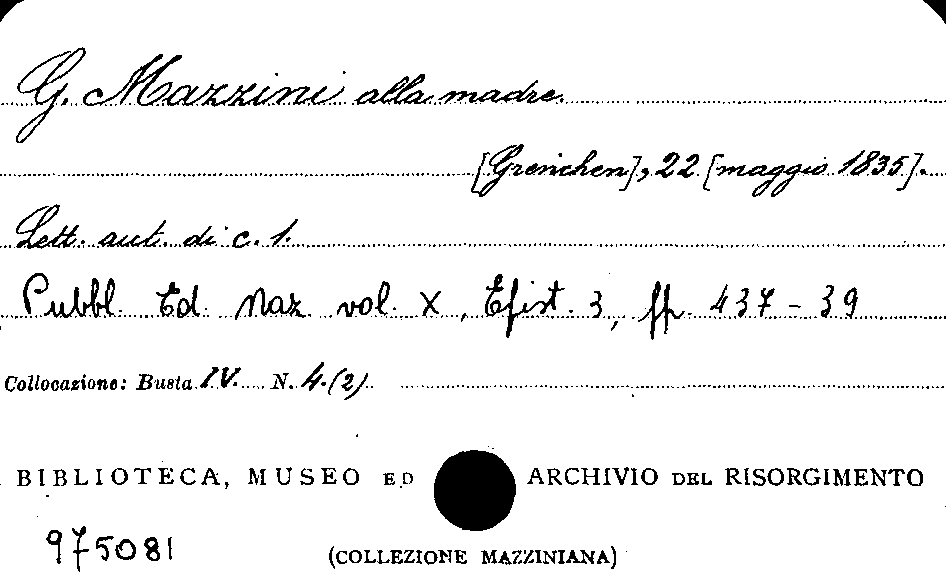 G. Mazzini alla madre.
[Grenchen], 22 [maggio 1835].
Lett. aut. di c. 1.
Pubbl. Ed. Naz. vol. X, Epist. 3, pp. 437-39
Collocazione: Busta IV. N. 4.(2).
BIBLIOTECA, MUSEO ED ARCHIVIO DEL RISORGIMENTO
975081
(COLLEZIONE MAZZINIANA)